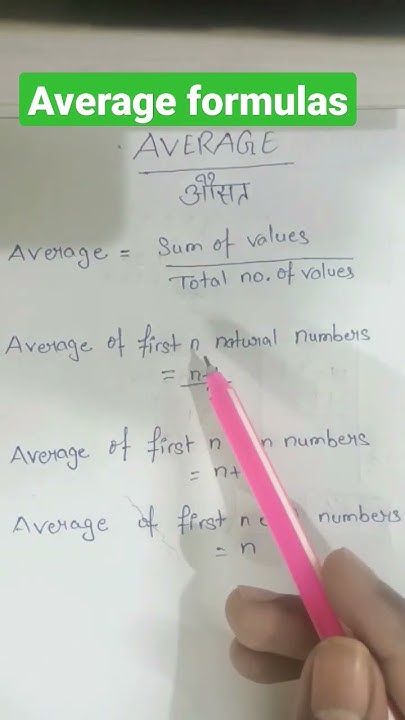 Average formulas
AVERAGE
औसत
Average = Sum of values
Total no. of values
Average of first n natural numbers
= n+
Average of first n numbers
= n+
Average of first n numbers
= n